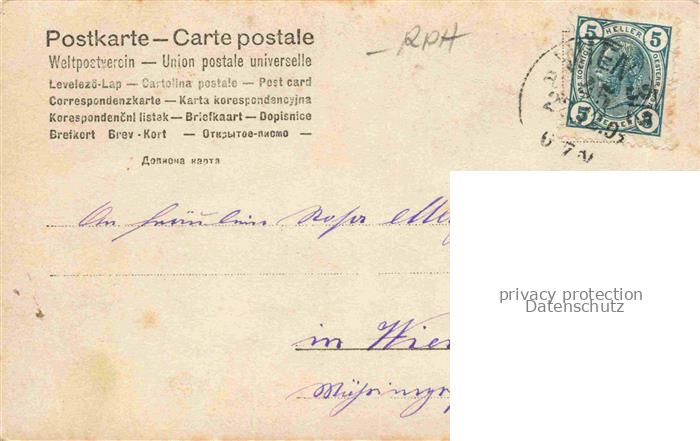 Postkarte — Carte postale
Weltpostverein — Union postale universelle
Levelező-Lap — Cartolina postale — Post card
Correspondenzkarte — Karta korespondencyjna
Korespondenční listek — Briefkaart — Dopisnice
Brefkort Brev-Kort — Открытое-писмо —
Дописна карта
RPH
5 HELLER 5
5 5
An Fräulein Rosa
in Wien
privacy protection
Datenschutz